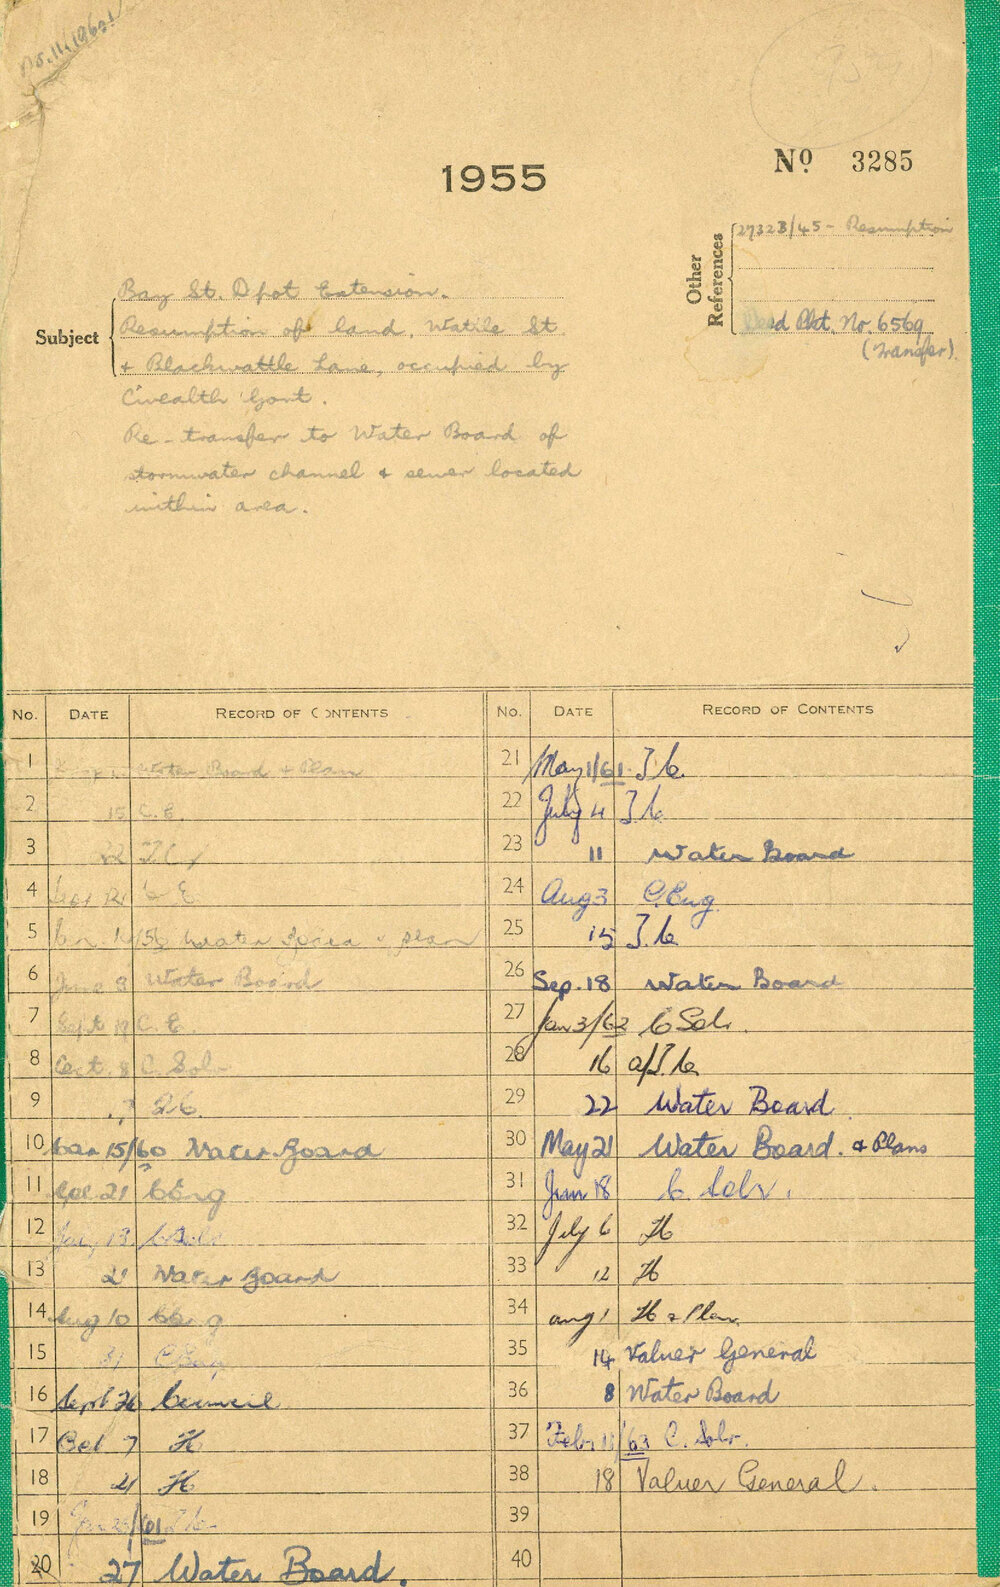 No. 11, 1960!
1955
No. 3285
Other References
2732B/45 - Resumption
Deed Pkt. No. 6569
(Transfer).
Subject
Bay St. Depot Extension.
Resumption of land, Wattle St
& Blackwattle Lane, occupied by
C'wealth Govt.
Re-transfer to Water Board of
stormwater channel & sewer located
within area.
No. DATE RECORD OF CONTENTS
1 Water Board & Plan
2 15 C.E.
3 22 T.C.
4 Sept C E
5 /56 Water & plan
6 June 8 Water Board
7 Sept 19 C.E.
8 Oct. 8 C. Solr
9
10 Mar 15/60 Water Board
11 Apl 21 C Eng
12 July 13 C Solr
13 21 Water Board
14 Aug 10 C Eng
15 31 C Eng
16 Sept 26 Council
17 Oct 7 H
18 21 H
19 Jan /61 T C
20 27 Water Board.
No. DATE RECORD OF CONTENTS
21 May 1/61 T C.
22 July 4 T C
23 11 Water Board
24 Aug 3 C. Eng.
25 15 T. C.
26 Sep. 18 Water Board
27 Jan 3/62 C Solr.
28 16 a/T. C.
29 22 Water Board
30 May 21 Water Board. & Plans
31 Jun 18 C. Solr.
32 July 6 H
33 12 H
34 Aug 1 H & Plan
35 14 Valuer General
36 8 Water Board
37 Feb 11/63 C. Solr.
38 18 Valuer General.
39
40